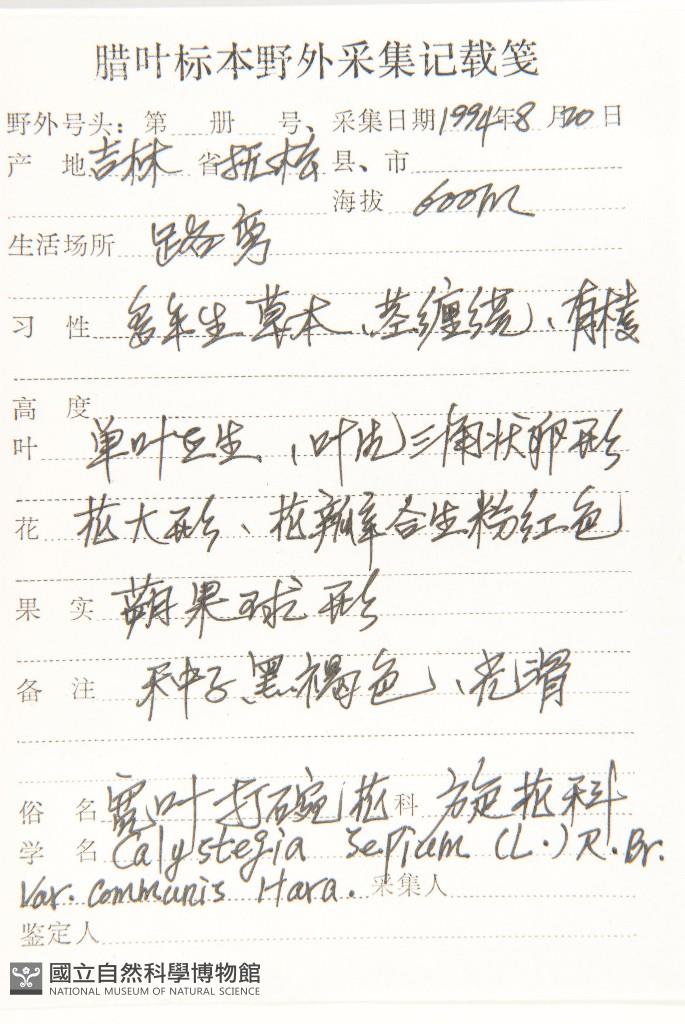 腊叶标本野外采集记载笺
野外号头: 第 册 号、采集日期1994年8月20日
产 地 吉林 省 抚松 县、市
海拔 600m
生活场所 路旁
习 性 多年生草本、茎缠绕、有棱
高 度
叶 单叶互生、叶片三角状卵形
花 花大形、花瓣合生粉红色
果 实 蒴果球形
备 注 种子黑褐色、光滑
俗 名 宽叶打碗花 科 旋花科
学 名 Calystegia Sepium (L.) R.Br.
Var. Communis Hara. 采集人
鉴定人
國立自然科學博物館
NATIONAL MUSEUM OF NATURAL SCIENCE